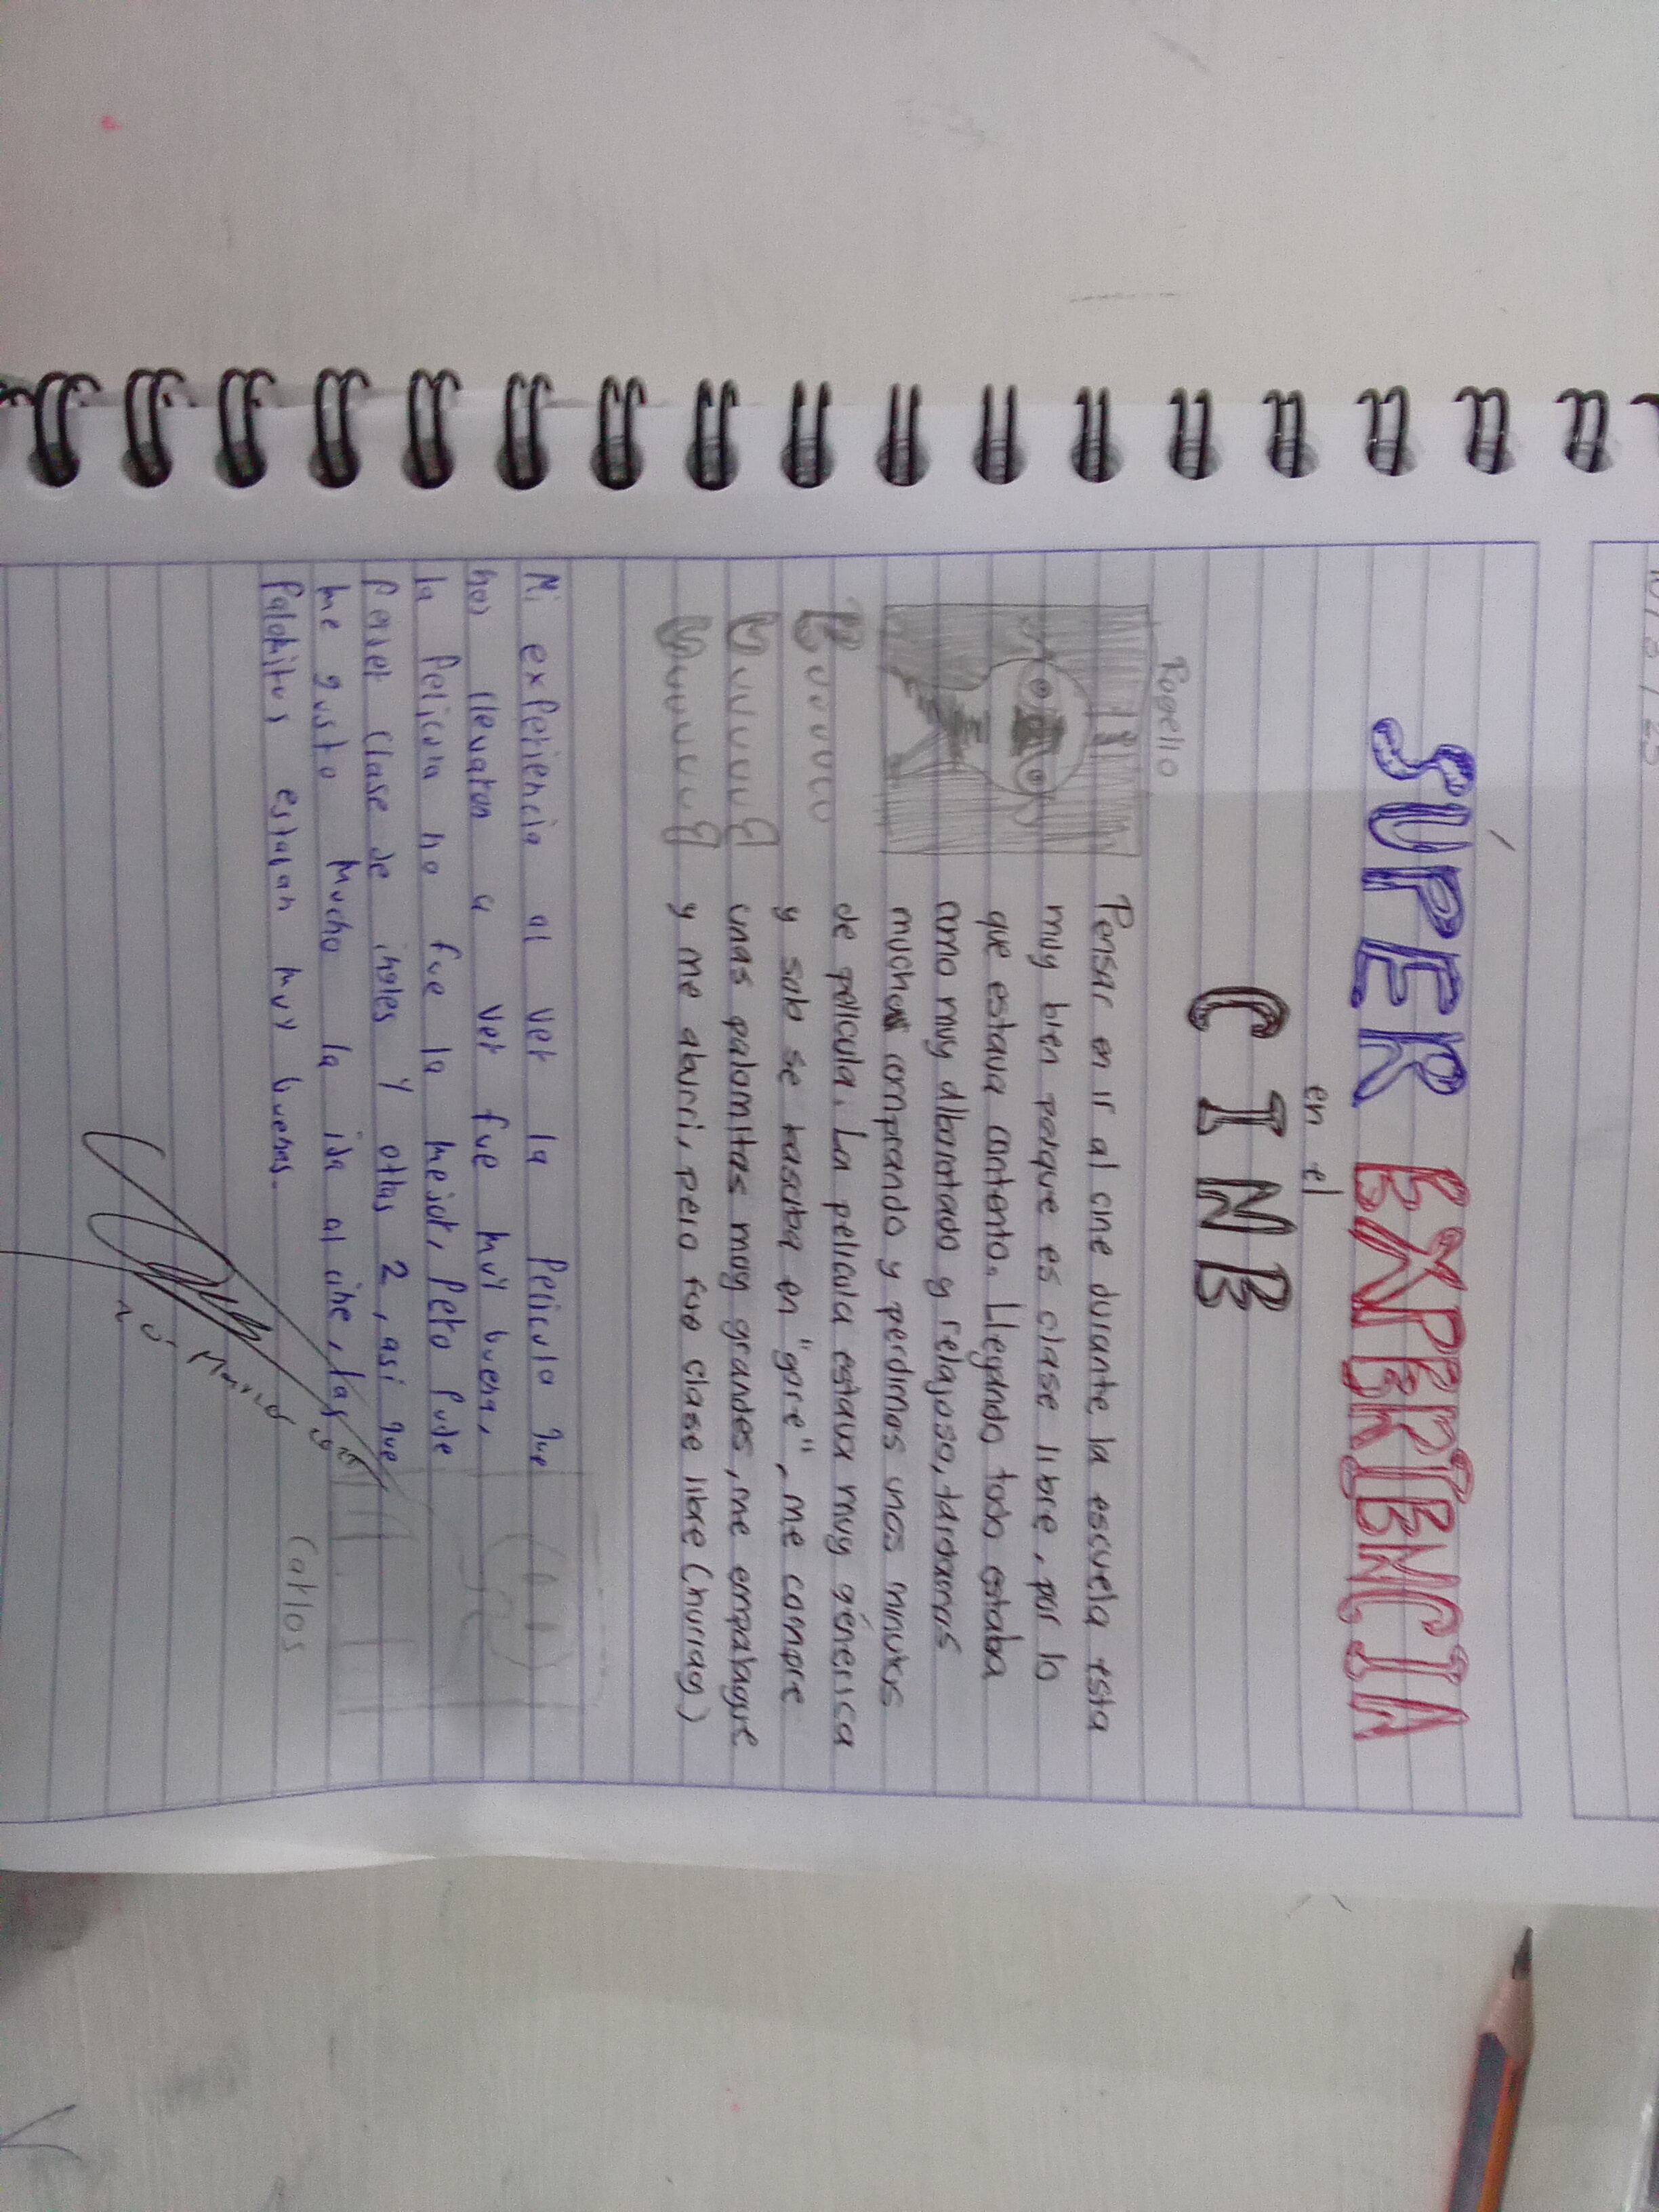 SÚPER EXPERIENCIA
en el
CINE
Rogelio
Pensar en ir al cine durante la escuela esta
muy bien porque es clase libre, por lo
que estava contento. Llegando todo estaba
como muy alborotado y relajoso, tardamos
muchos comprando y perdimos unos minutos
de pelicula. La pelicula estava muy génerica
y solo se basaba en "gore", me compre
unas palomitas muy grandes, me empalagué
y me aburri, pero fue clase libre (hurray)
Mi experiencia al ver la Pelicula que
nos llevaron a ver fue muy buena,
la Pelicula no fue la mejor, Pero Pude
Perder clase de ingles y otras 2, asi que
me gusto Mucho la ida al cine, las
Palomitas estaban muy buenas.
Carlos